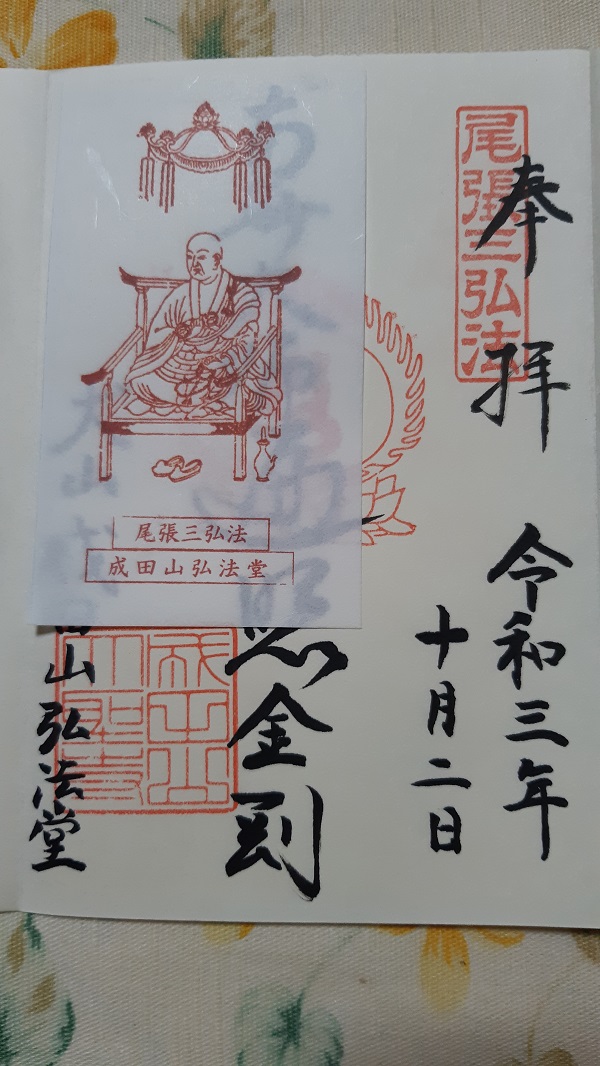 尾張三弘法
奉拝
令和三年
十月二日
照金剛
田山弘法堂
尾張三弘法
成田山弘法堂